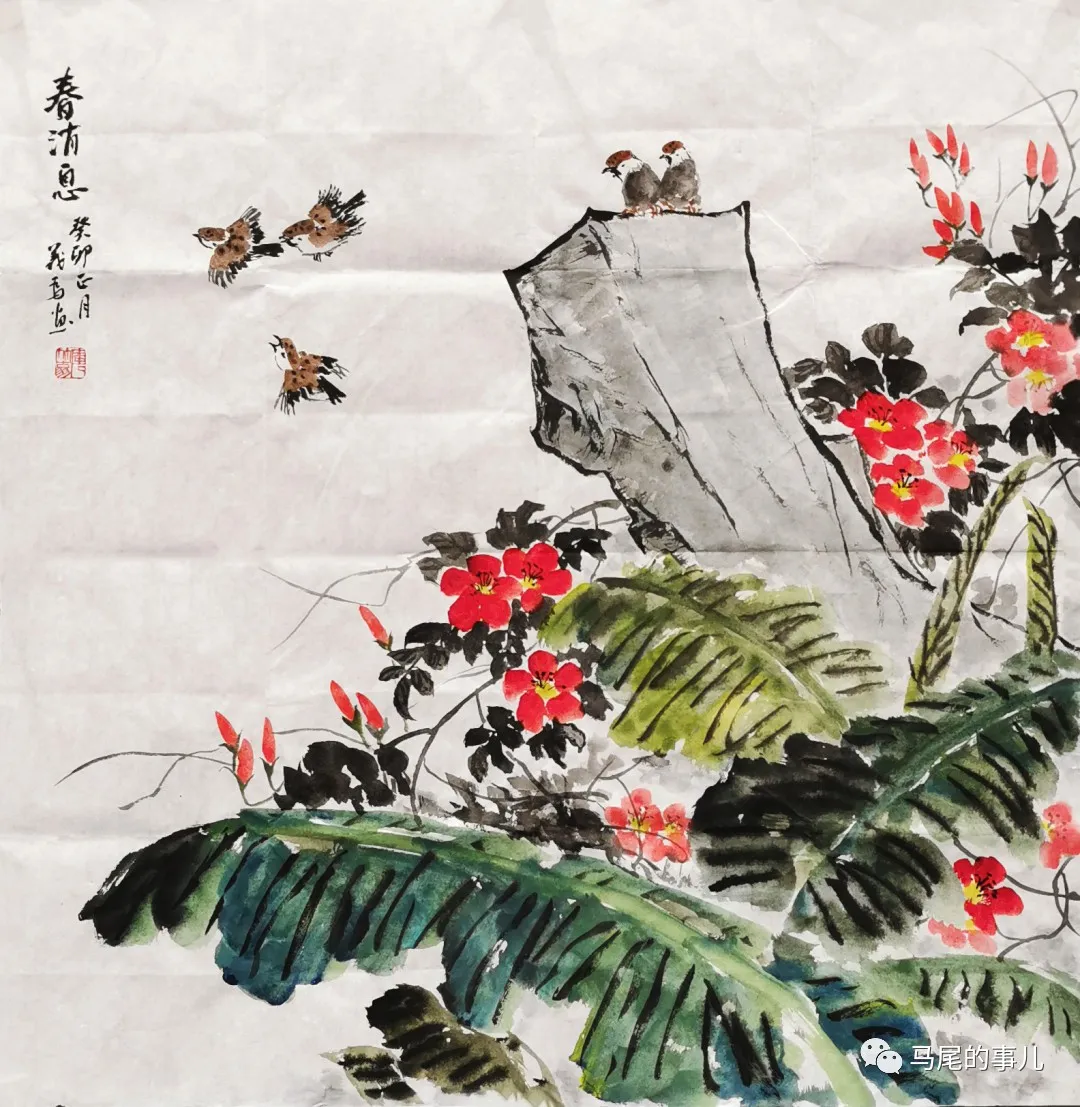 春消息
癸卯正月
义香画
马尾的事儿